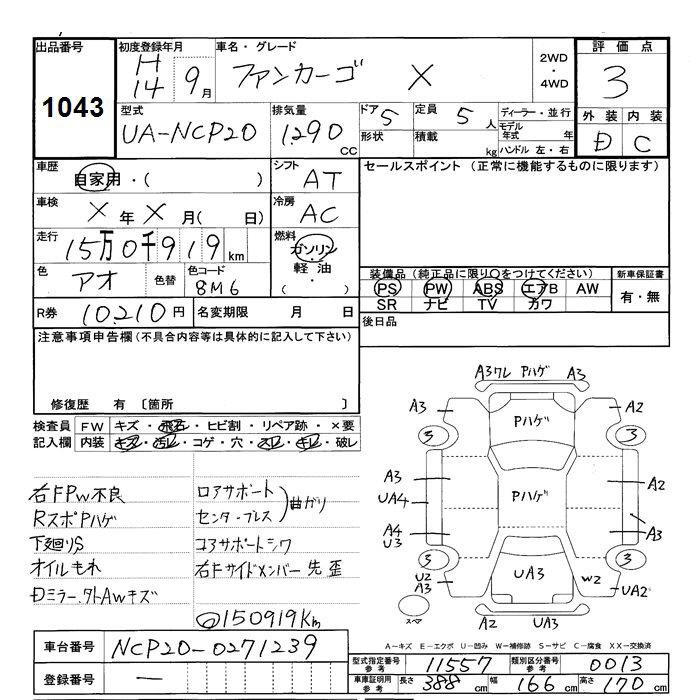 出品番号
1043
初度登録年月
H14 9月
車名・グレード
ファンカーゴ X
2WD・4WD
評価点
3
外装 内装
D C
型式
UA-NCP20
排気量
1290 CC
ドア 5
形状
定員 5人
積載 kg
ディーラー・並行
モデル年式 年
ハンドル 左・右
車歴
自家用・( )
シフト
AT
セールスポイント (正常に機能するものに限ります)
車検
X年X月( 日)
冷房
AC
走行
15万0千919km
燃料
ガソリン
軽油・
( )
色
アオ
色替
色コード
8M6
装備品 (純正品に限り○をつけてください)
PS PW ABS エアB AW
SR ナビ TV カワ
新車保証書
有・無
R券 10,210円
名変期限 月 日
後日品
注意事項申告欄(不具合内容等は具体的に記入して下さい)
修復歴 有〔箇所 〕
検査員記入欄
FW キズ・飛石・ヒビ割・リペア跡・×要
内装 キズ・汚レ・コゲ・穴・スレ・キレ・破レ
右FPW不良
RスポPハゲ
下廻りS
オイルもれ
Dミラー、外AWキズ
ロアサポート
センターブレス
曲ガリ
コアサポートシワ
右Fサイドメンバー先歪
150919Km
A3ワレ Pハゲ A3
A3 Pハゲ A2
3 3
A3 Pハゲ A2
UA4
A4 A3
U3
3 3
U2 UA3 W2 UA2
A3
スペア
A2 UA3
A-キズ E-エクボ U-凹み W-補修跡 S-サビ C-腐食 XX-交換済
車台番号 NCP20-0271239
登録番号 —
型式指定番号 参考 11557
類別区分番号 参考 0013
車庫証明用 参考 長さ 388cm 幅 166cm 高さ 170cm